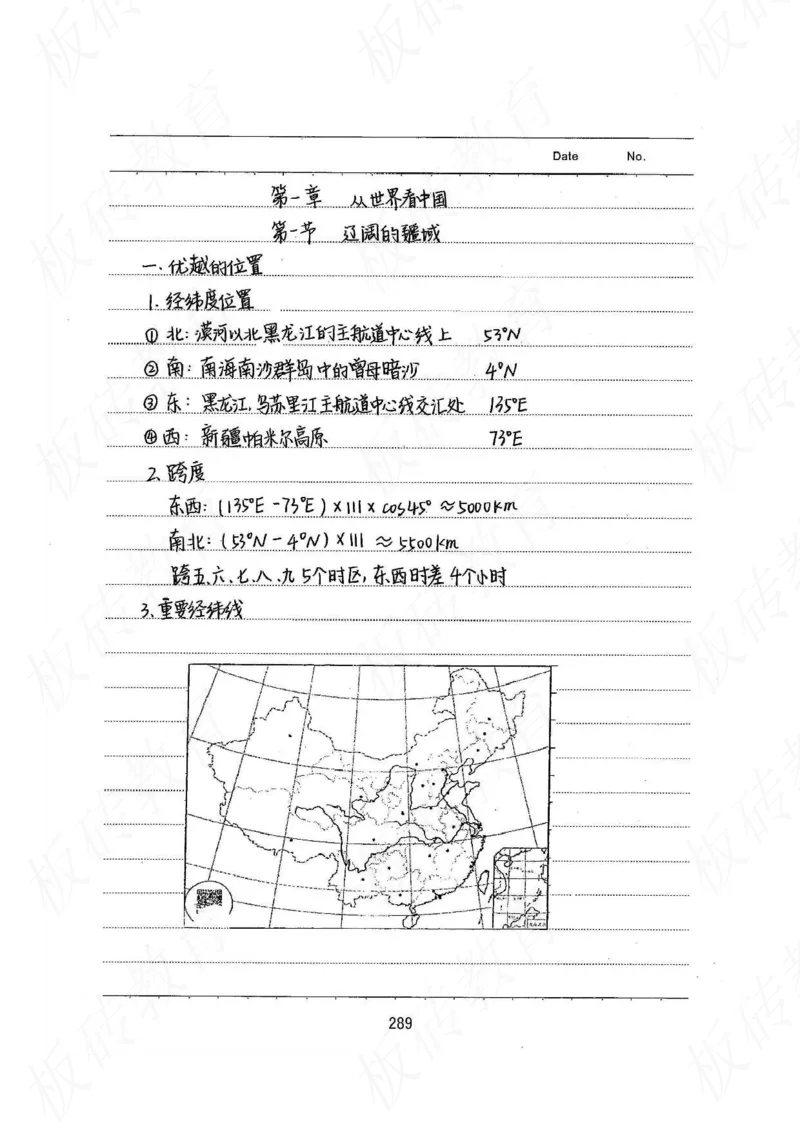 Date No.
第一章 从世界看中国
第一节 辽阔的疆域
一、优越的位置
1. 经纬度位置
① 北：漠河以北黑龙江的主航道中心线上 53°N
② 南：南海南沙群岛中的曾母暗沙 4°N
③ 东：黑龙江，乌苏里江主航道中心线交汇处 135°E
④ 西：新疆帕米尔高原 73°E
2. 跨度
东西：(135°E -73°E) × 111 × cos45° ≈ 5000km
南北：(53°N - 4°N) × 111 ≈ 5500km
跨五、六、七、八、九 5个时区，东西时差 4个小时
3、重要经纬线
289
板砖教育